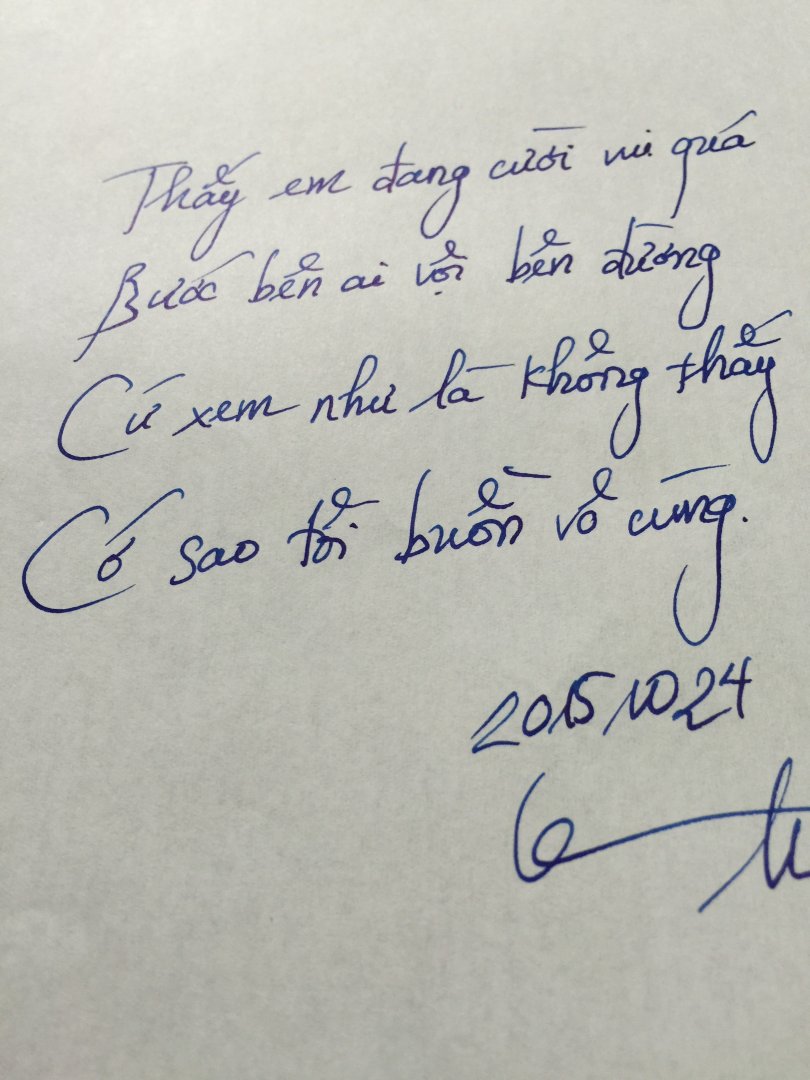 Thấy em đang cười vui quá
Bước bên ai vội bên đường
Cứ xem như là không thấy
Cớ sao tôi buồn vô cùng.
20151024